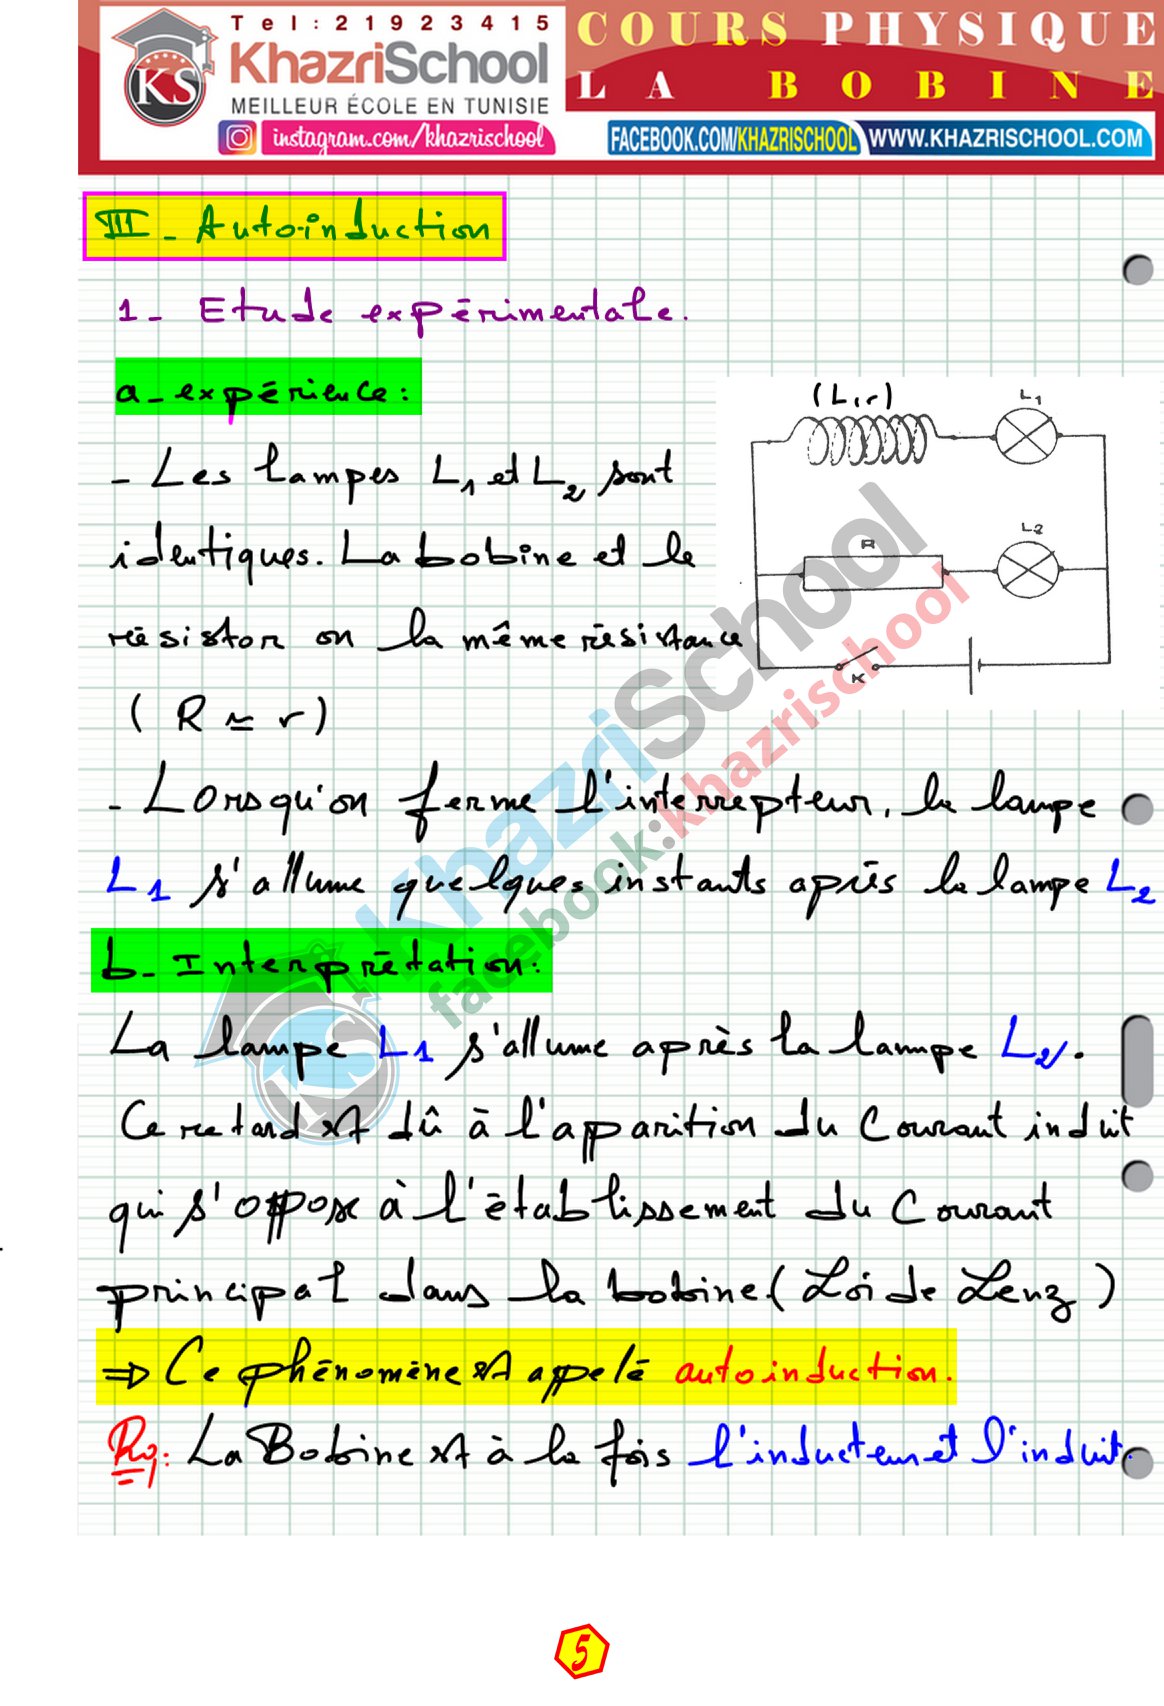 Tel:21923415
KhazriSchool
MEILLEUR ÉCOLE EN TUNISIE
KS
instagram.com/khazrischool
COURS PHYSIQUE
LA BOBINE
FACEBOOK.COM/KHAZRISCHOOL
WWW.KHAZRISCHOOL.COM
III - Autoinduction
1- Etude expérimentale.
a- expérience:
(L,r)
L1
- Les lampes L1 et L2 sont
L2
R
identiques. La bobine et le
résistor on la même résistance
K
( R ≃ r )
- Lorsqu'on ferme l'interrepteur, la lampe
L1 s'allume quelques instants après la lampe L2
b- Interprétation:
La lampe L1 s'allume après la lampe L2.
Ce retard est dû à l'apparition du courant induit
qui s'oppose à l'établissement du courant
principal dans la bobine (Loi de Lenz)
⇒ Ce phénomène est appelé autoinduction.
Rq: La Bobine est à la fois l'inducteur et l'induit.
KhazriSchool
facebook:khazrischool
KS
5